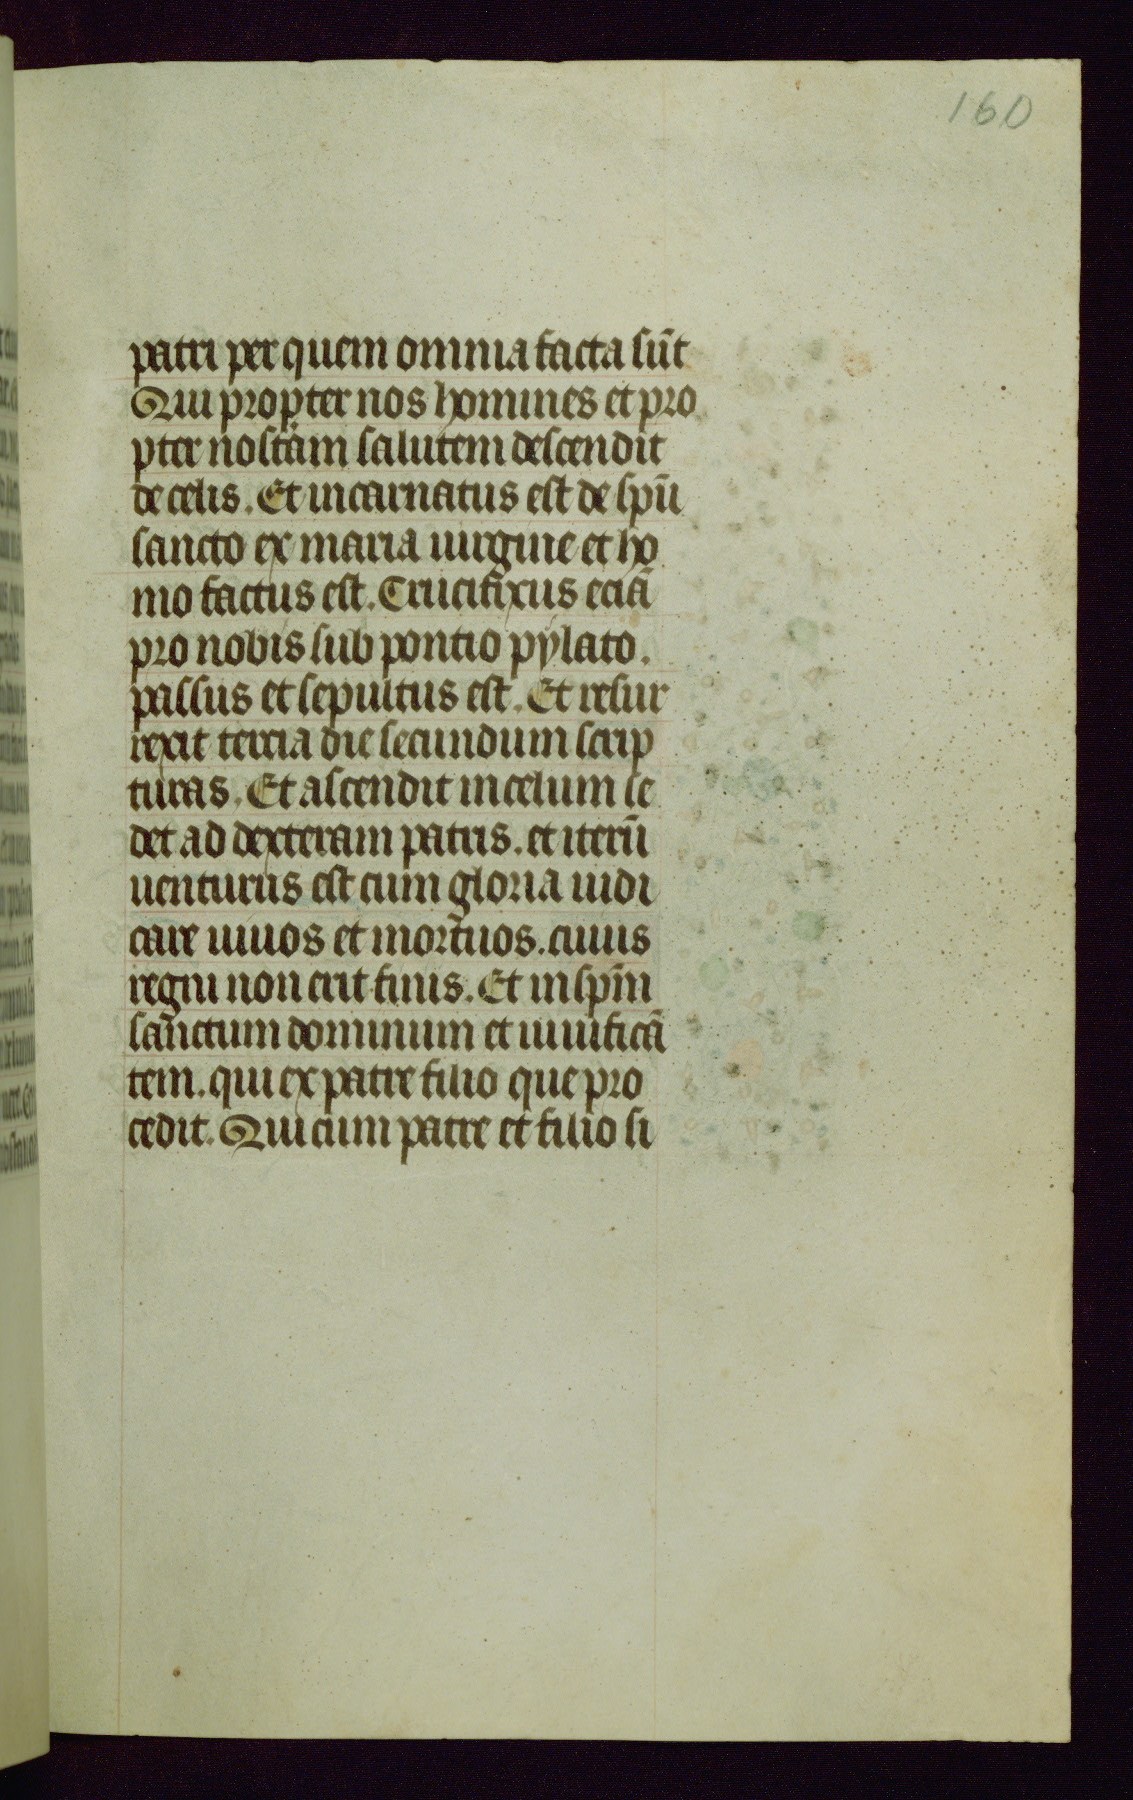 160
patri per quem omnia facta sūt
Qui propter nos homines et pro
pter nostam salutem descendit
de celis. Et incarnatus est de spū
sancto ex maria uirgine et ho
mo factus est. Crucifixus eciā
pro nobis sub pontio pylato.
passus et sepultus est. Et resur
rexit tercia die secundum scrip
turas. Et ascendit in celum se
det ad dexteram patris. et iterū
uenturus est cum gloria iudi
care uiuos et mortuos. cuius
regni non erit finis. Et in spm̄
sanctum dominum et uiuificā
tem. qui ex patre filio que pro
cedit. Qui cum patre et filio si